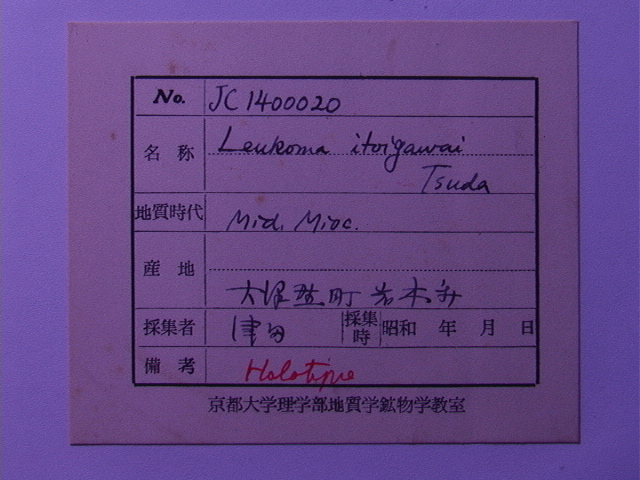 No. JC1400020
名称 Leukoma itoigawai
Tsuda
地質時代 Mid. Mioc.
産地
町
採集者 津田 採集時 昭和 年 月 日
備考 Holotype
京都大学理学部地質学鉱物学教室